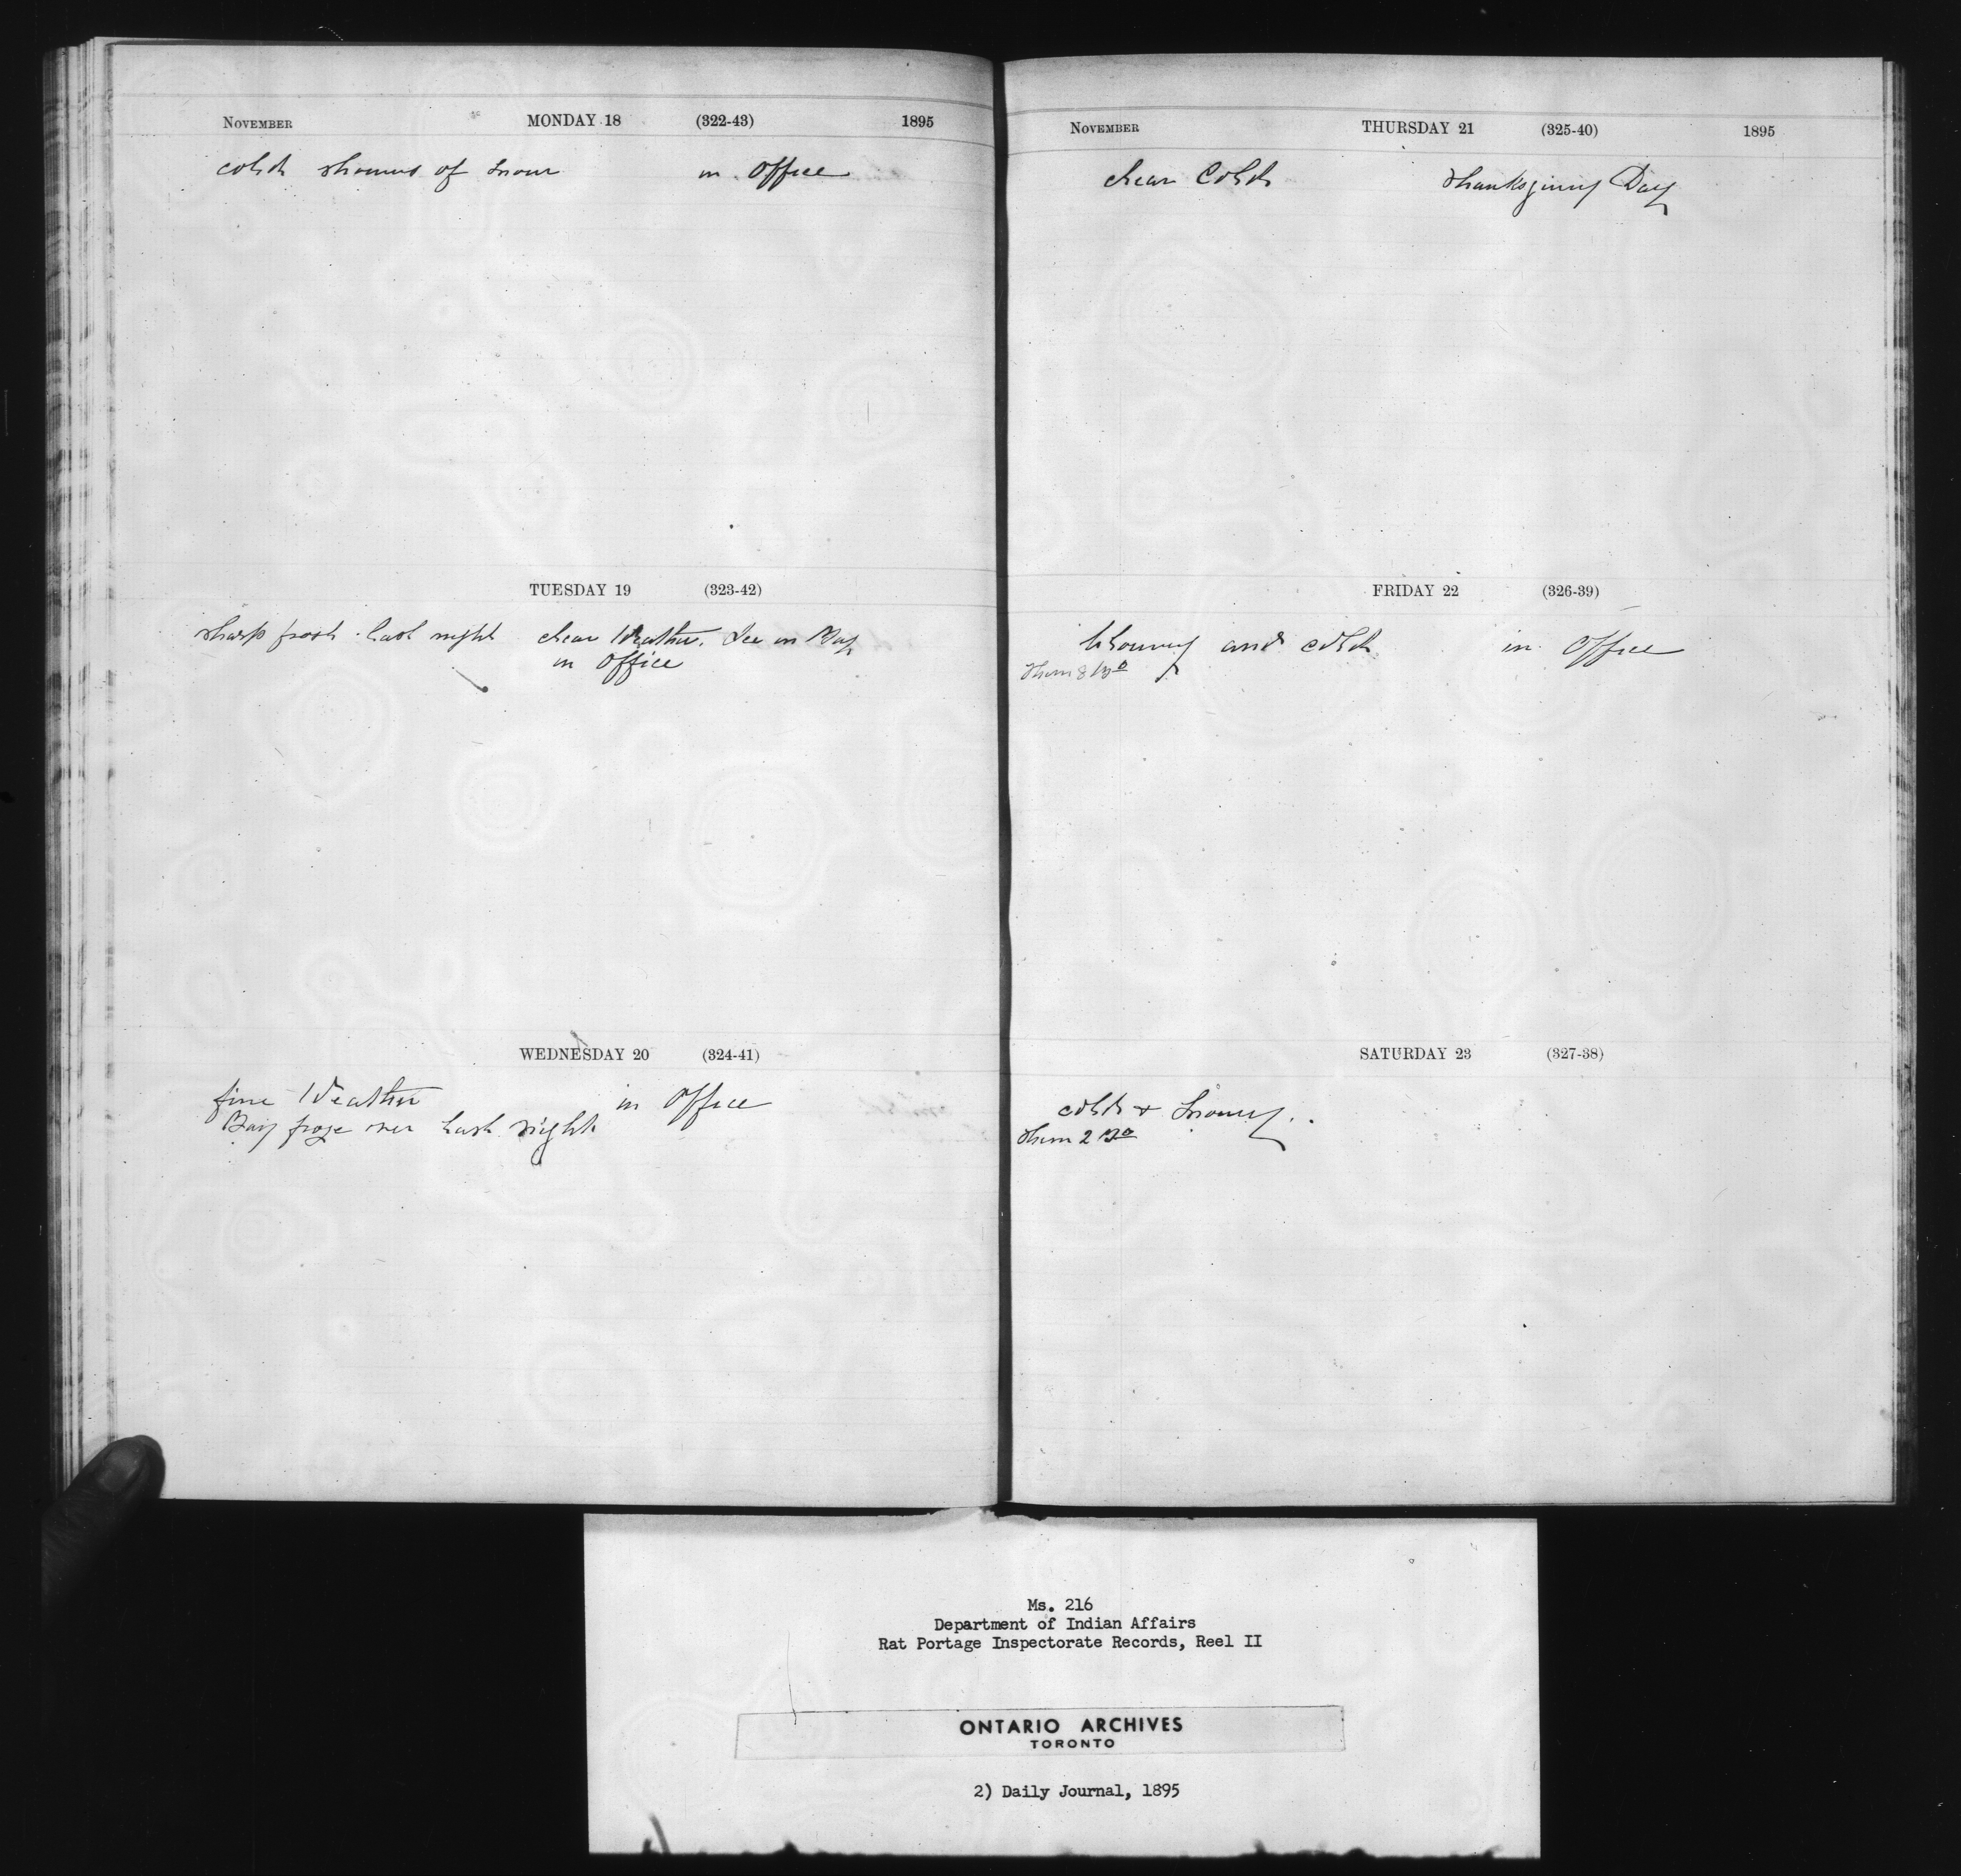 November MONDAY 18 (322-43) 1895
cold showers of snow in Office
TUESDAY 19 (323-42)
sharp frost last night clear Weather. Ice in Bay
in Office
WEDNESDAY 20 (324-41)
fine Weather in Office
Bay froze over last night
November THURSDAY 21 (325-40) 1895
clear Cold Thanksgiving Day
FRIDAY 22 (326-39)
and cold in Office
Therm 8
SATURDAY 23 (327-38)
cold & Snowy.
Therm 2
Ms. 216
Department of Indian Affairs
Rat Portage Inspectorate Records, Reel II
ONTARIO ARCHIVES
TORONTO
2) Daily Journal, 1895